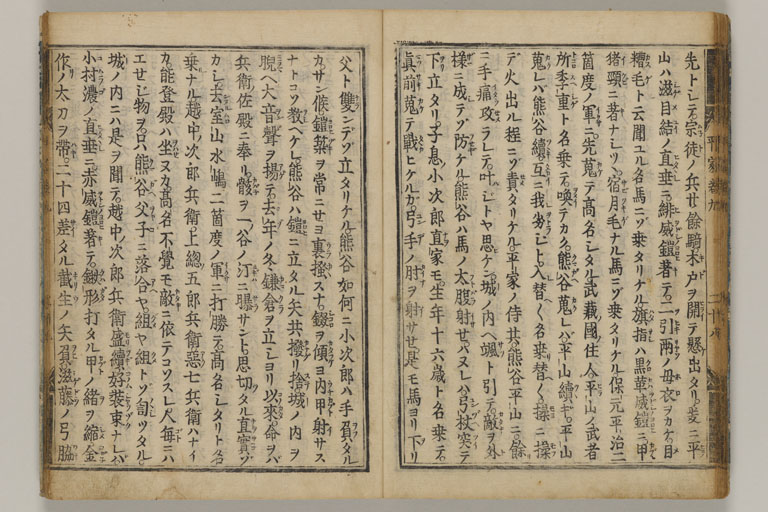 先トシテ宗徒ノ兵廿餘騎木戸ヲ開テ懸出タリ爰ニ平
山ハ滋目結ノ直垂ニ緋威鎧著テ二引兩ノ母衣ヲカケ目
糟毛ト云聞ユル名馬ニゾ乗タリケル旗指ハ黒革威鎧ニ甲
猪頸ニ著ナシツヽ宿月毛ナル馬ニゾ乗タリケル保元平治二
箇度ノ軍ニ先蒐テ高名シタル武藏國住人平山ノ武者
所季重ト名乗テ喚テカク熊谷蒐レバ平山續キ平山
蒐レバ熊谷續互ニ我劣ジト入替〱名乗替〱操ニ操
デ火出ル程ニゾ責タリケル平家ノ侍共熊谷平山ニ餘
ニ手痛攻ラレテ叶ジトヤ思ケン城ノ内ヘ颯ト引テ敵ヲ外
樣ニ成テゾ防ケル熊谷ハ馬ノ太腹射サセハヌレバ弓杖突テ
下立タリ子息小次郎直家モ生年十六歳ト名乗テ
眞前蒐テ戰ヒケルガ弓手ノ肘ヲ射サセ是モ馬ヨリ下リ
平家卷九
父ト雙ンデゾ立タリケル熊谷如何ニ小次郎ハ手負タル
カサン候鎧築ヲ常ニセヨ裏掻スナ錣ヲ傾ヨ内甲射サス
ナトコソ教ヘケレ熊谷ハ鎧ニ立タル矢共掻リ捨城ノ内ヲ
睨ヘ大音聲ヲ揚テ去年ノ冬鎌倉ヲ立シヨリ以來命ヲバ
兵衛佐殿ニ奉リ骸ヲ一谷ノ汀ニ曝サントト思切タル直實ゾ
カシ去室山水嶋二箇度ノ軍ニ打勝テ高名シタリト名
乗ナル越中次郎兵衛上總五郎兵衛惡七兵衛ハナイ
カ能登殿ハ坐ヌカ高名不覺モ敵ニ依テコソスレ人毎ニハ
エせジ物ヲ只熊谷父子ニ落合ヤ組ヤ組トゾ訇ツタル
城ノ内ニハ是ヲ聞テ越中次郎兵衛盛續好裝束ナレバ
小村濃ノ直垂ニ赤威鎧著テ鍬形打タル甲ノ緒ヲ縮金
作ノ太刀ヲ帶二十四差タル截生ノ矢負滋籐ノ弓脇